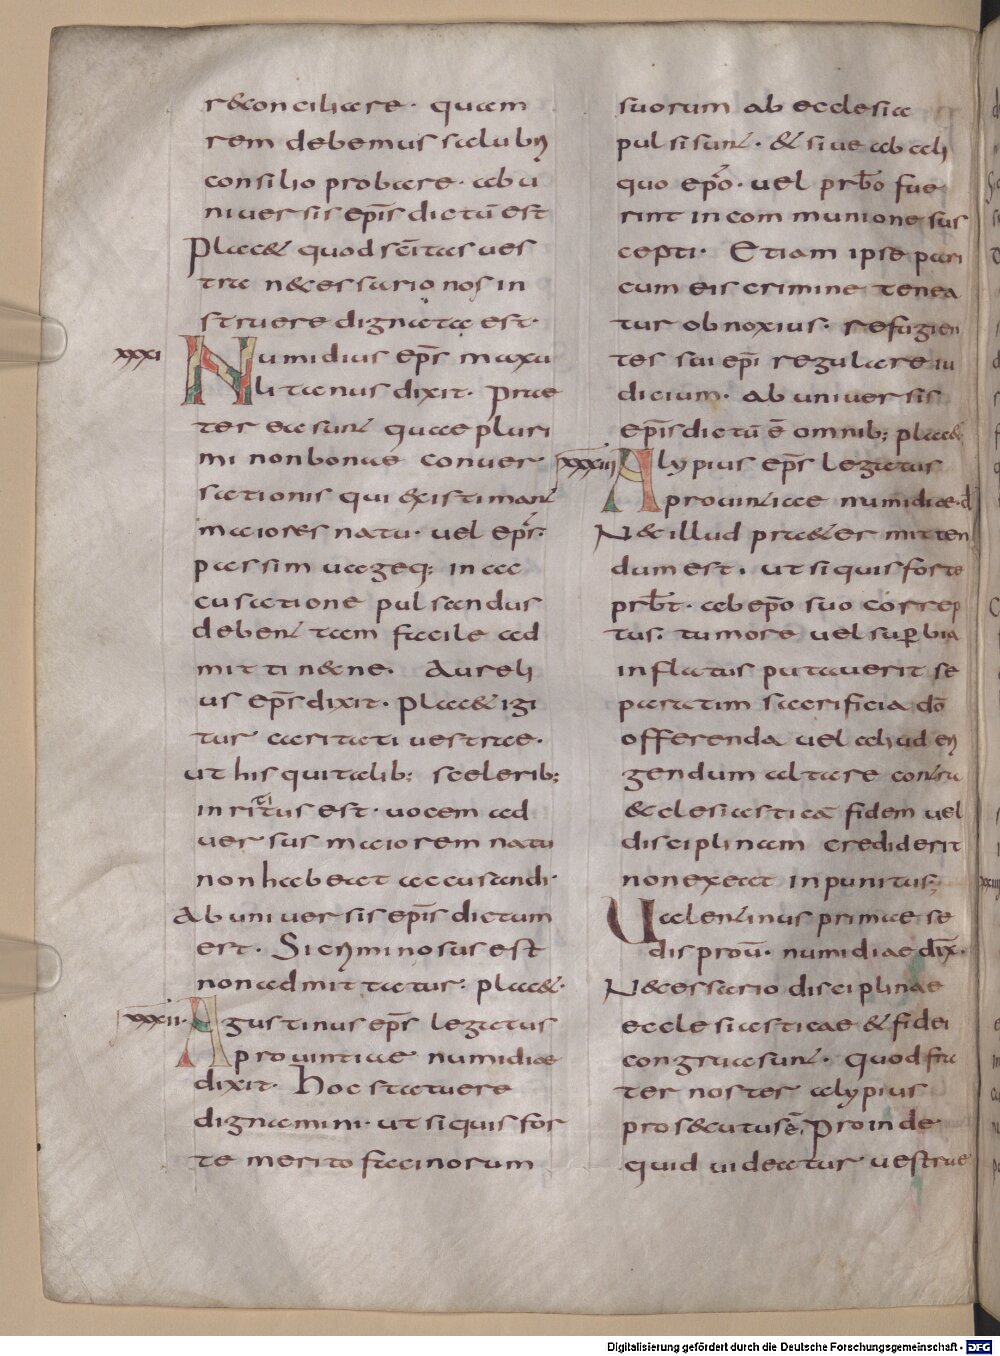 r&conciliare · quam
rem debemus salubri
consilio probare · ab u
niuersis ep̄is dictū est
Plac& quod sc̄itas ues
tra n&cessario nos in
struere dignata est ·
xxxi Numidius ep̄s maxu
litanus dixit · Prae
ter ea sunt quae pluri
mi non bonae conuer
sationis qui &xistimant
maiores natu · uel ep̄s ·
passim uageq; in ac
cusatione pulsandus
debent tam facile ad
mitti n&ne · Aureli
us ep̄s dixit · plac& igi
tur caritati uestrae ·
ut his qui talib; scelerib;
inritus est · uocem ad
uersus maiorem natu
non habeat accusandi ·
Ab uniuersis ep̄is dictum
est · Si criminosus est
non admittatur : plac& ·
xxxii · Agustinus ep̄s legatus
prouintiae numidiae
dixit · hoc statuere
dignamini · ut si quis for
te merito facinorum
suorum ab ecclesia
pulsi sunt · & siue ab ali
quo ep̄o · uel prb̄o fue
rint in communione sus
cepti · Etiam ipse pari
cum eis crimine tenea
tur obnoxius : refugien
tes sui ep̄i regulare iu
dicium · ab uniuersis
ep̄is dictū ē omnib; plac&
xxxiii Alypius ep̄s legatus
prouintiae numidiae · d
N&c illud praet&er mitten
dum est · ut si quis forte
prb̄t · ab ep̄o suo correp
tus : tumore uel sup̱bia
inflatus putauerit se
paratim sacrificia dō
offerenda uel aliud eri
gendum altare contra
&clesiasticā fidem uel
disciplinam crediderit
non exeat inpunitus ;
Ualentinus primae se
dis prou̅ · numidiae dix̅ ·
N&cessario disciplinae
ecclesiasticae & fidei
congrua sunt · quod fra
ter noster alypius
pros&cutus ē, Proinde
quid uideatur uestrae
Digitalisierung gefördert durch die Deutsche Forschungsgemeinschaft - DFG